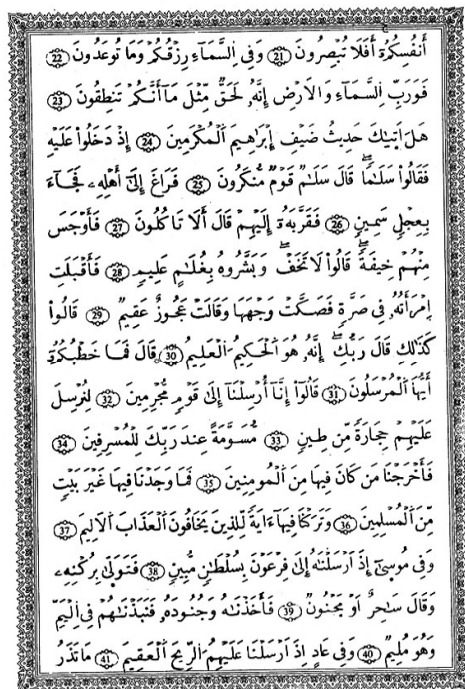 أَنفُسِكُمُۥٓ أَفَلَا تُبْصِرُونَ 21 وَفِى اِ۬لسَّمَآءِ رِزْقُكُمْ وَمَا تُوعَدُونَ 22
فَوَرَبِّ اِ۬لسَّمَآءِ وَالَارْضِ إِنَّهُۥ لَحَقٌّ مِّثْلَ مَآ أَنَّكُمْ تَنطِقُونَ 23
هَلَ اَتٜيٰكَ حَدِيثُ ضَيْفِ إِبْرَٰهِيمَ اَ۬لْمُكْرَمِينَ 24 إِذْ دَخَلُواْ عَلَيْهِ
فَقَالُواْ سَلَٰمًا قَالَ سَلَٰمٌ قَوْمٌ مُّنكَرُونَ 25 فَرَاغَ إِلَىٰٓ أَهْلِهِۦ فَجَآءَ
بِعِجْلٍ سَمِينٍ 26 فَقَرَّبَهُۥٓ إِلَيْهِمْ قَالَ أَلَا تَاكُلُونَ 27 فَأَوْجَسَ
مِنْهُمْ خِيفَةً قَالُواْ لَا تَخَفْ وَبَشَّرُوهُ بِغُلَٰمٍ عَلِيمٍ 28 فَأَقْبَلَتِ
اِ۪مْرَأَتُهُۥ فِى صَرَّةٍ فَصَكَّتْ وَجْهَهَا وَقَالَتْ عَجُوزٌ عَقِيمٌ 29 قَالُواْ
كَذَٰلِكِ قَالَ رَبُّكِ إِنَّهُۥ هُوَ اَ۬لْحَكِيمُ اُ۬لْعَلِيمُ 30 قَالَ فَمَا خَطْبُكُمُۥٓ
أَيُّهَا اَ۬لْمُرْسَلُونَ 31 قَالُوٓاْ إِنَّآ أُرْسِلْنَآ إِلَىٰ قَوْمٍ مُّجْرِمِينَ 32 لِنُرْسِلَ
عَلَيْهِمْ حِجَارَةً مِّن طِينٍ 33 مُّسَوَّمَةً عِندَ رَبِّكَ لِلْمُسْرِفِينَ 34
فَأَخْرَجْنَا مَن كَانَ فِيهَا مِنَ اَ۬لْمُومِنِينَ 35 فَمَا وَجَدْنَا فِيهَا غَيْرَ بَيْتٍ
مِّنَ اَ۬لْمُسْلِمِينَ 36 وَتَرَكْنَا فِيهَآ ءَايَةً لِّلَّذِينَ يَخَافُونَ اَ۬لْعَذَابَ اَ۬لَالِيمَ 37
وَفِى مُوسَىٰٓ إِذَ اَرْسَلْنَٰهُ إِلَىٰ فِرْعَوْنَ بِسُلْطَٰنٍ مُّبِينٍ 38 فَتَوَلَّىٰ بِرُكْنِهِۦ
وَقَالَ سَٰحِرٌ اَوْ مَجْنُونٌ 39 فَأَخَذْنَٰهُ وَجُنُودَهُۥ فَنَبَذْنَٰهُمْ فِى اِ۬لْيَمِّ
وَهُوَ مُلِيمٌ 40 وَفِى عَادٍ اِذَ اَرْسَلْنَا عَلَيْهِمُ اُ۬لرِّيحَ اَ۬لْعَقِيمَ 41 مَا تَذَرُ